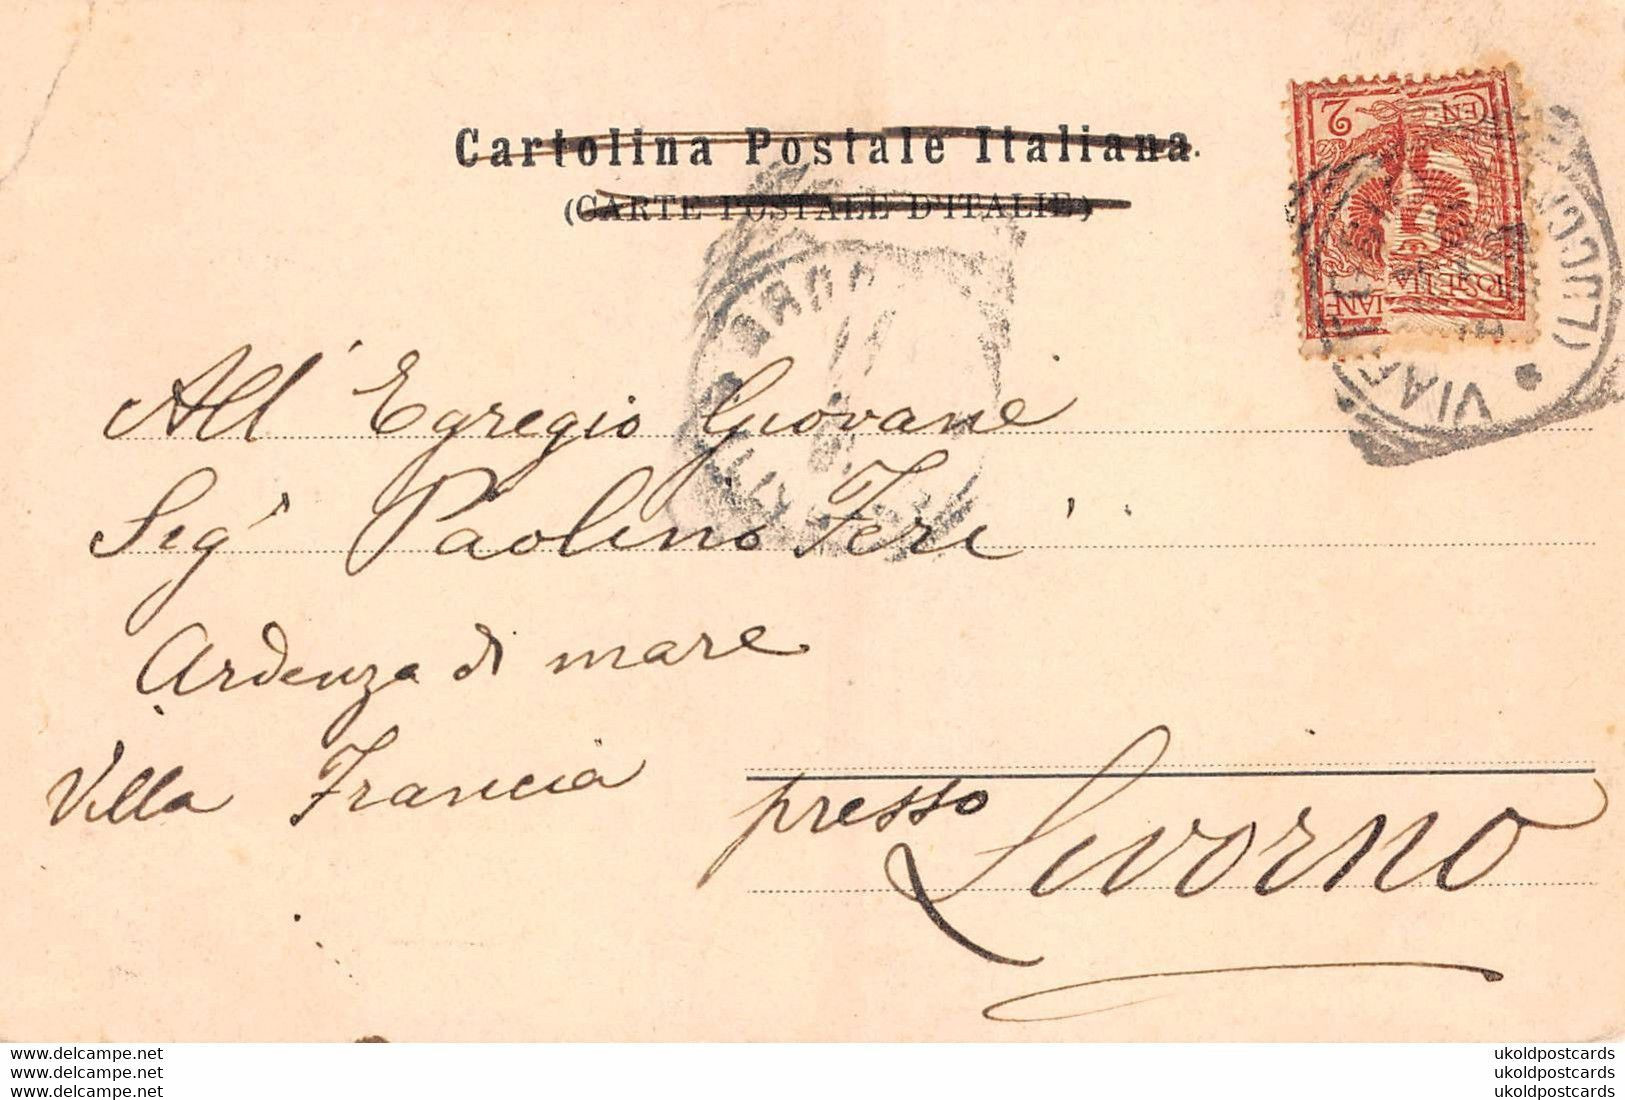 Cartolina Postale Italiana.
(CARTE POSTALE D'ITALIE)
CEN 2
All' Egregio Giovane
Sigr Paolino Feri
Ardenza di mare
Villa Francia
presso Livorno
www.delcampe.net
www.delcampe.net
www.delcampe.net
ukoldpostcards
ukoldpostcards
ukoldpostcards